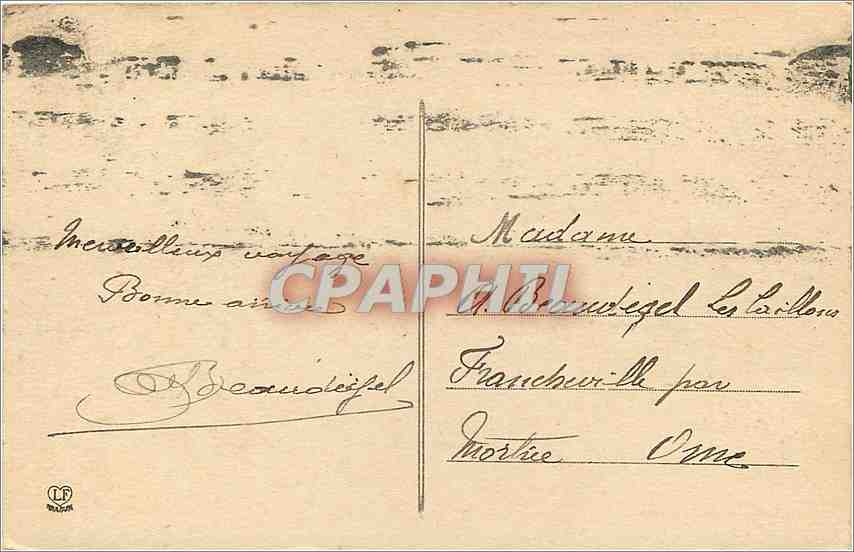 Merveilleux voyage
Bonne arrivée
Beaudégel
Madame
A. Beaudégel Les Caillous
Francheville par
Mortrée Orne
CPAPHIL
LF